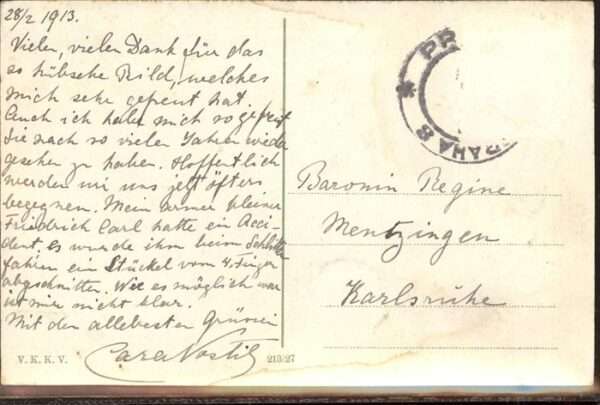 28/2 1913.
Vielen, vielen Dank für das
so hübsche Bild, welches
mich sehr gefreut hat.
Auch ich habe mich so gefreut
Sie nach so vielen Jahren wieder
gesehen zu haben. Hoffentlich
werden wir uns jetzt öfters
begegnen. Mein armer kleiner
Friedrich Carl hatte ein Acci-
dent, es wurde ihm beim Schlitten
fahren ein Stückel vom 4. Finger
abgeschnitten. Wie es möglich war
ist mir nicht klar.
Mit den allerbesten Grüssen
Cara Nostitz
V. K. K. V.
213/27
PR
PRAHA 8
Baronin Regine
Mentzingen
Karlsruhe